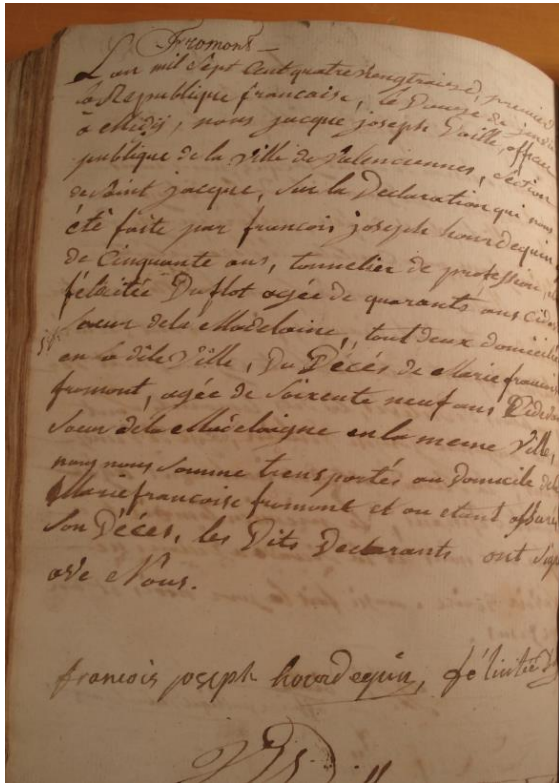 Fromont
L'an mil Sept Cent quatre vingt traize, premier
la Republique francaise, le Douze de
à Midis, nous jacque joseph
publique de la ville de Valenciennes, Section
de Saint jacque, Sur la Declaration qui nous
été faite par francois joseph hourdequin
de Cinquante ans, tonnelier de profession,
félicitée Duflot agée de quarante ans
Soeur dela Madelaine, tout deux domicilié
en la dite Ville, Du Décés de Marie francoise
fromont, agée de Soixente neuf ans
Soeur déla Madelaigne en la meme Ville,
nous nous Somme transportés au Domicile de
Marie francoise fromont et ou etant assuré
Son Décés, les Dits Declarants ont
avec Nous.
francois joseph hourdequin, félicitée